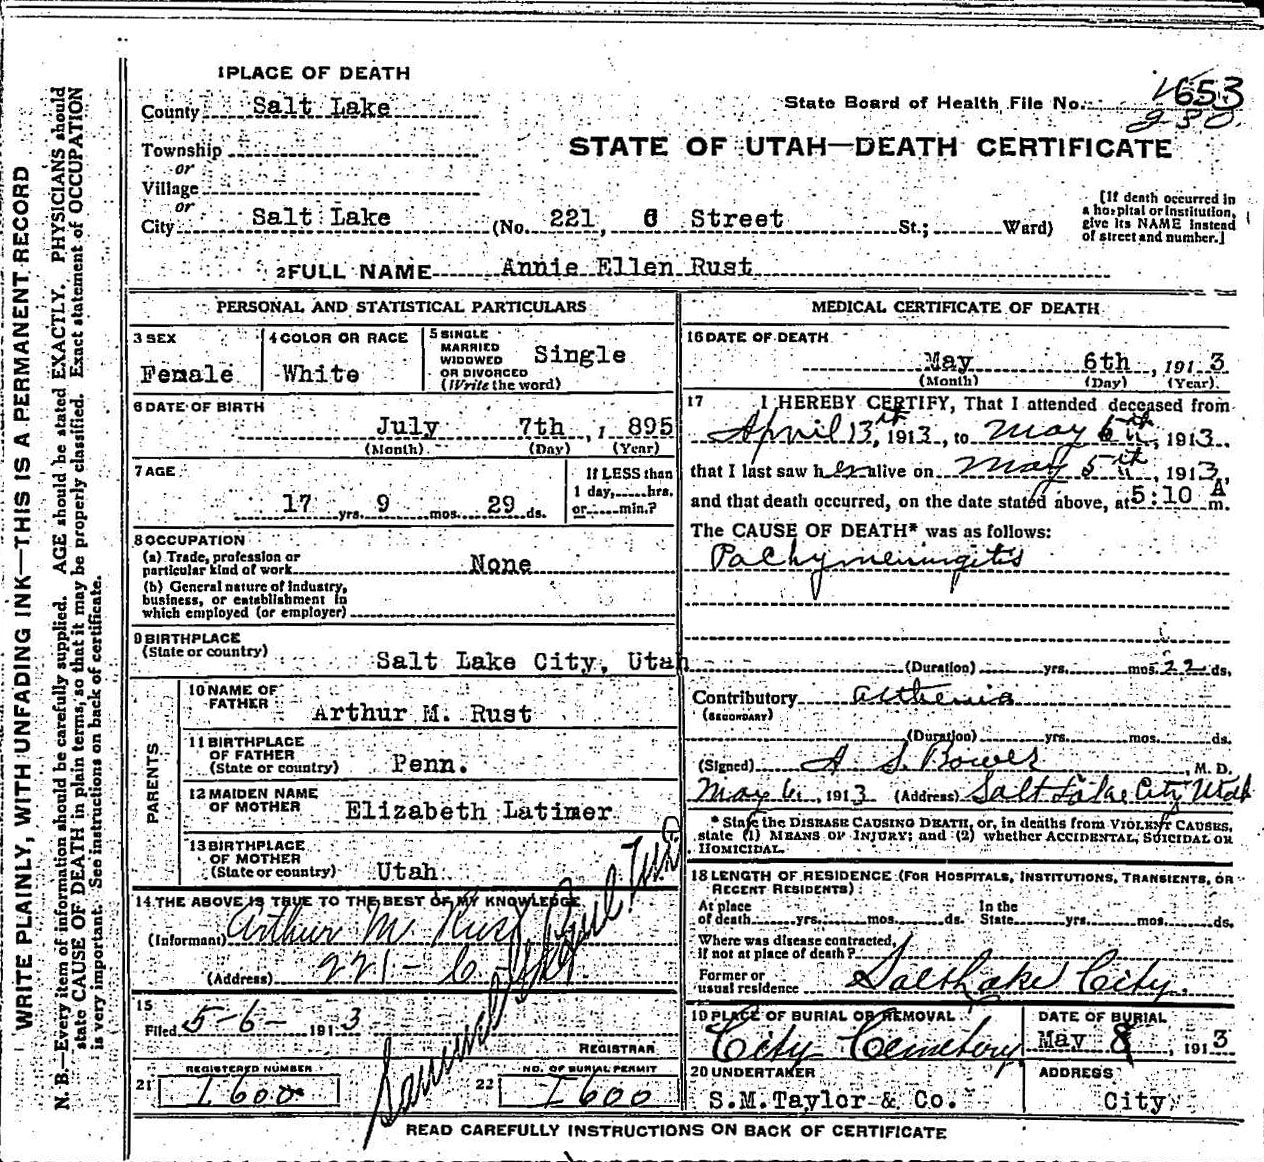 WRITE PLAINLY, WITH UNFADING INK—THIS IS A PERMANENT RECORD
N. B.—Every item of information should be carefully supplied. AGE should be stated EXACTLY. PHYSICIANS should
state CAUSE OF DEATH in plain terms, so that it may be properly classified. Exact statement of OCCUPATION
is very important. See instructions on back of certificate.
1 PLACE OF DEATH
County Salt Lake
State Board of Health File No. 1653
230
Township
or
Village
or
STATE OF UTAH—DEATH CERTIFICATE
City Salt Lake (No. 221, 6 Street St.; Ward)
[If death occurred in
a hospital or institution,
give its NAME instead
of street and number.]
2 FULL NAME Annie Ellen Rust
PERSONAL AND STATISTICAL PARTICULARS
3 SEX
Female
4 COLOR OR RACE
White
5 SINGLE
MARRIED
WIDOWED
OR DIVORCED
(Write the word)
Single
6 DATE OF BIRTH
July 7th, 1 895
(Month) (Day) (Year)
7 AGE
17 yrs. 9 mos. 29 ds.
If LESS than
1 day, hrs.
or min.?
8 OCCUPATION
(a) Trade, profession or
particular kind of work None
(b) General nature of industry,
business, or establishment in
which employed (or employer)
9 BIRTHPLACE
(State or country)
Salt Lake City, Utah
PARENTS
10 NAME OF
FATHER
Arthur M. Rust
11 BIRTHPLACE
OF FATHER
(State or country) Penn.
12 MAIDEN NAME
OF MOTHER Elizabeth Latimer
13 BIRTHPLACE
OF MOTHER
(State or country) Utah
14 THE ABOVE IS TRUE TO THE BEST OF MY KNOWLEDGE
(Informant) Arthur M Rust
(Address) 221- 6
15
Filed 5-6- 1913
Samuel
REGISTRAR
REGISTERED NUMBER
21 I600
NO. OF BURIAL PERMIT
22 I600
MEDICAL CERTIFICATE OF DEATH
16 DATE OF DEATH
May 6th, 1913
(Month) (Day) (Year)
17 I HEREBY CERTIFY, That I attended deceased from
April 13th, 1913, to May 6th, 1913.
that I last saw her alive on May 5th, 1913,
and that death occurred, on the date stated above, at 5:10 A m.
The CAUSE OF DEATH* was as follows:
Pachymeningitis
(Duration) yrs. mos. 22 ds.
Contributory asthenia
(SECONDARY)
(Duration) yrs. mos. ds.
(Signed) A. S. Bower, M. D.
May 6, 1913 (Address) Salt Lake City Utah
* State the DISEASE CAUSING DEATH, or, in deaths from VIOLENT CAUSES,
state (1) MEANS OF INJURY; and (2) whether ACCIDENTAL, SUICIDAL OR
HOMICIDAL.
18 LENGTH OF RESIDENCE (FOR HOSPITALS, INSTITUTIONS, TRANSIENTS, OR
RECENT RESIDENTS)
At place
of death yrs. mos. ds.
In the
State yrs. mos. ds.
Where was disease contracted,
if not at place of death?
Former or
usual residence Salt Lake City.
19 PLACE OF BURIAL OR REMOVAL
City Cemetery
DATE OF BURIAL
May 8, 1913
20 UNDERTAKER
S.M.Taylor & Co.
ADDRESS
City
READ CAREFULLY INSTRUCTIONS ON BACK OF CERTIFICATE